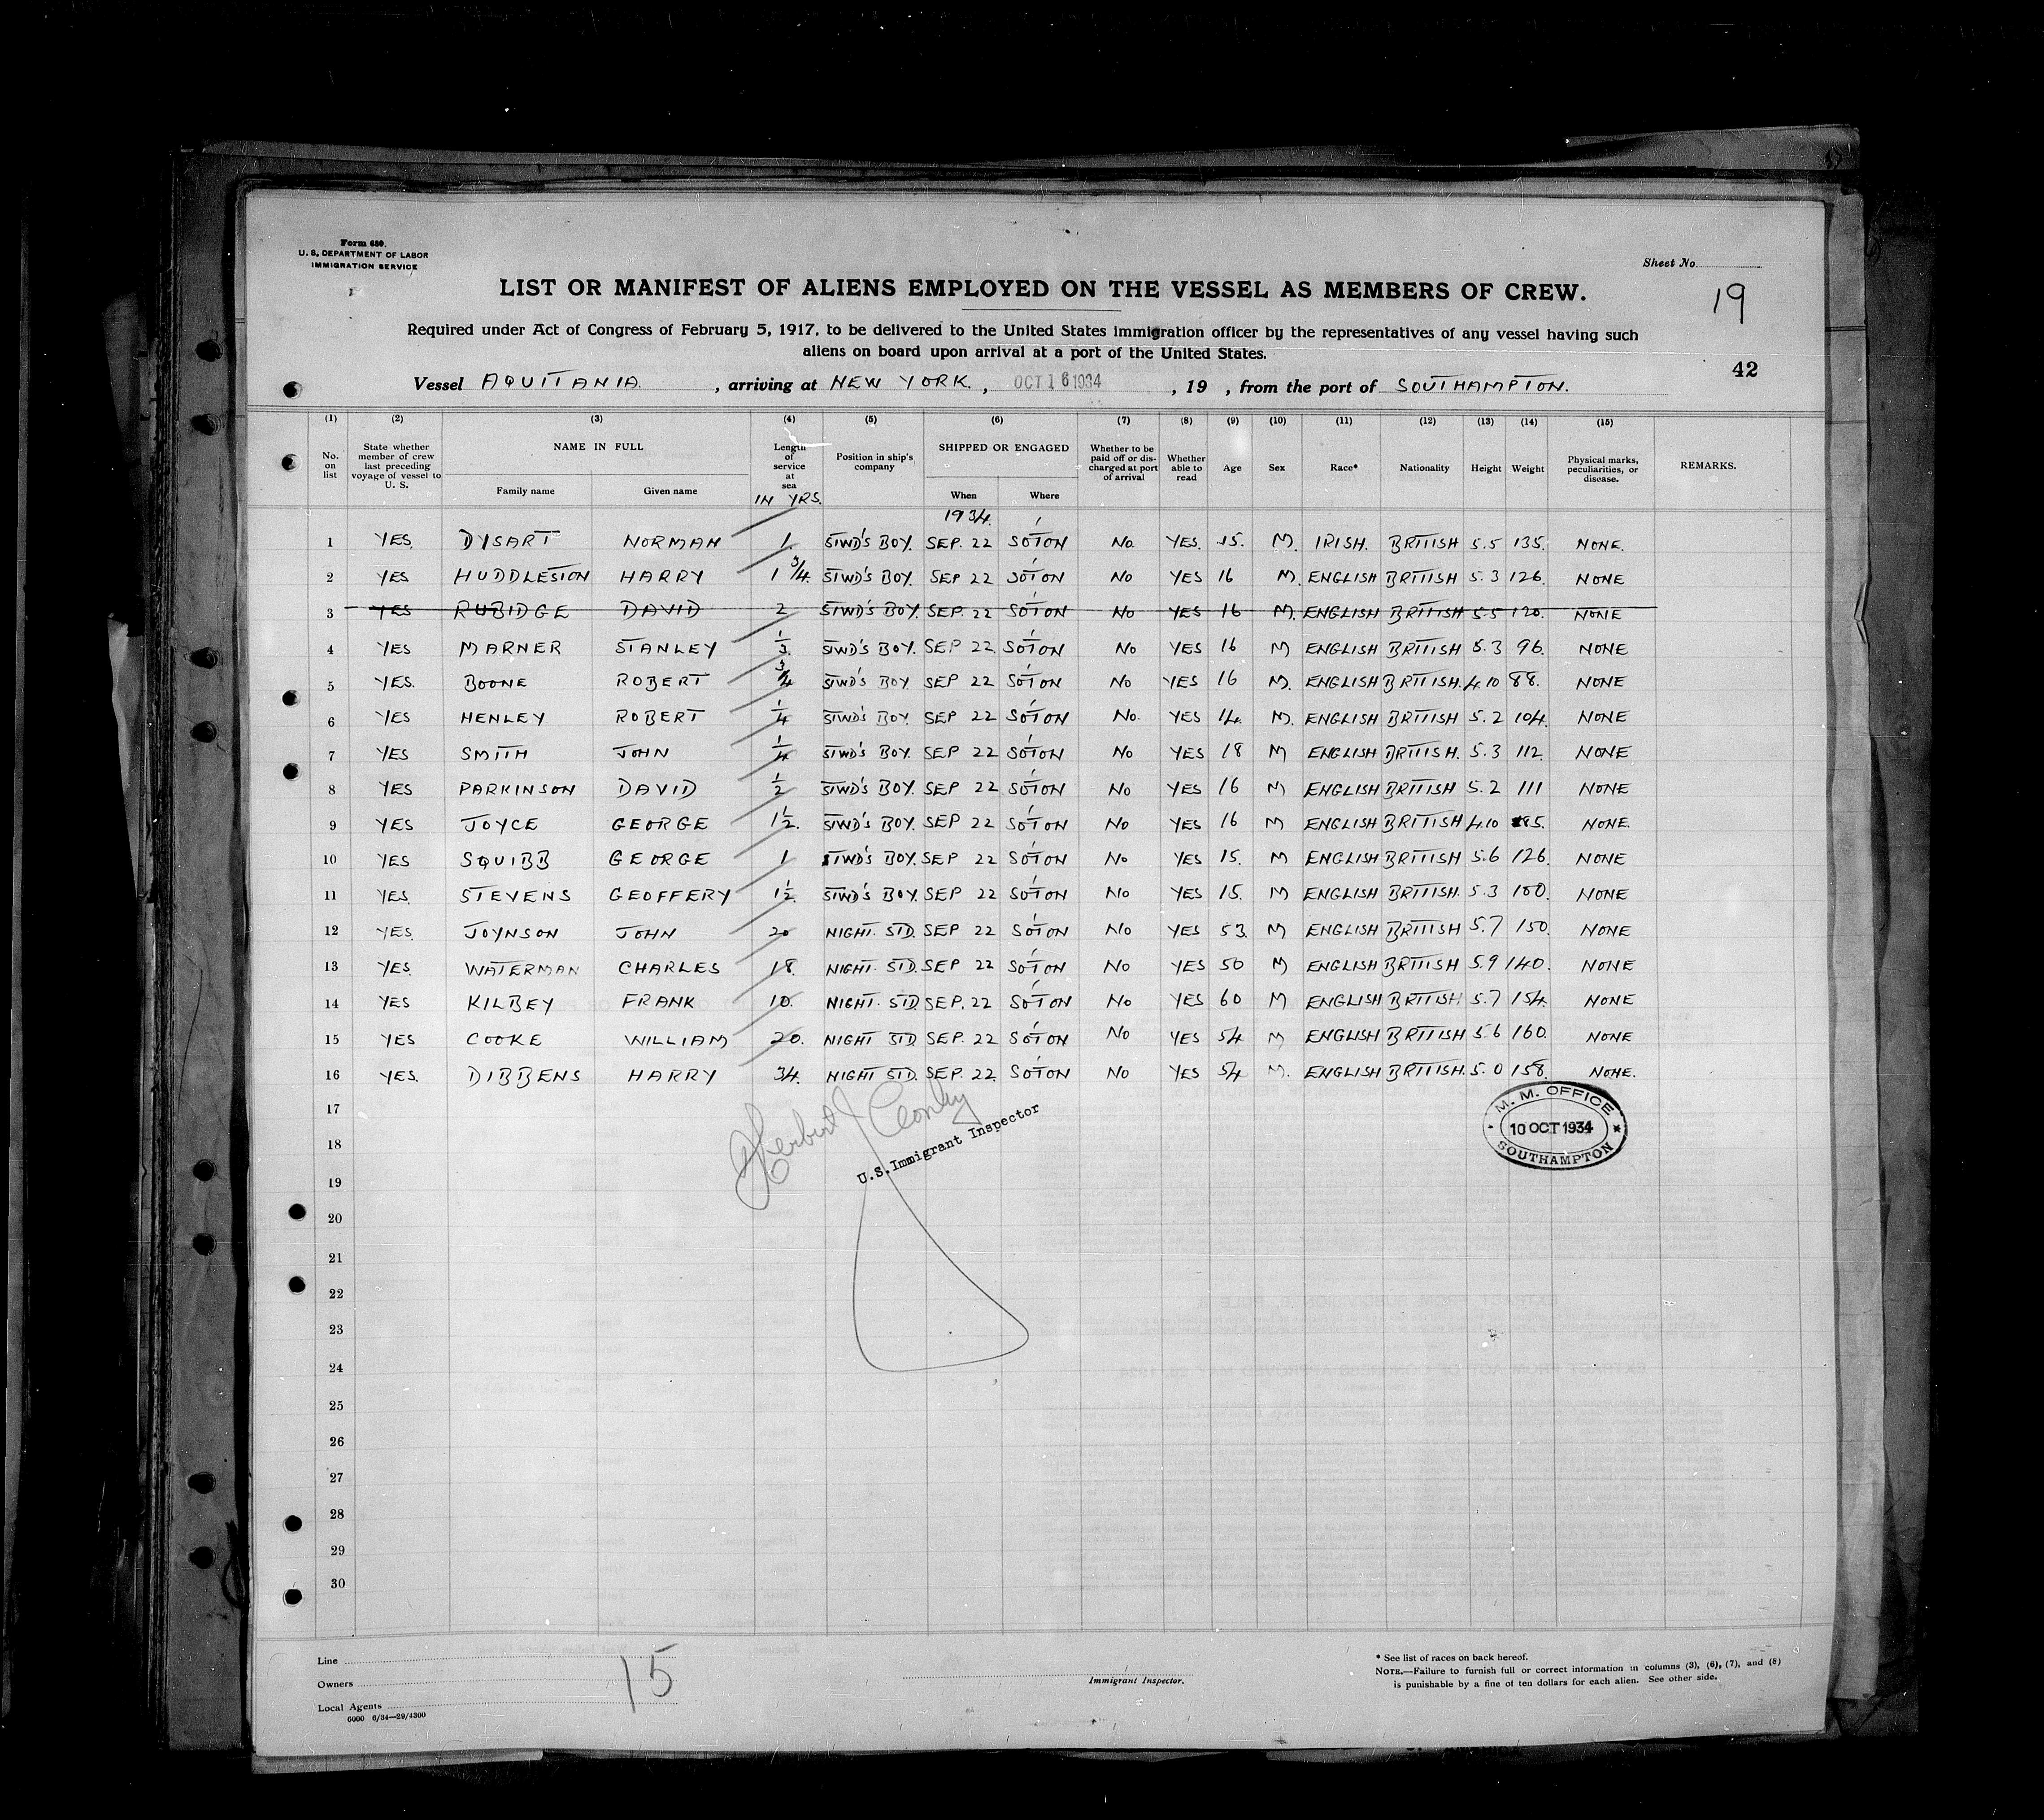 Form 680.
U. S. DEPARTMENT OF LABOR
IMMIGRATION SERVICE
Sheet No.
LIST OR MANIFEST OF ALIENS EMPLOYED ON THE VESSEL AS MEMBERS OF CREW.
19
Required under Act of Congress of February 5, 1917, to be delivered to the United States immigration officer by the representatives of any vessel having such
aliens on board upon arrival at a port of the United States.
42
Vessel AQUITANIA. , arriving at NEW YORK. , OCT 16 1934 , 19 , from the port of SOUTHAMPTON.
(1) (2) (3) (4) (5) (6) (7) (8) (9) (10) (11) (12) (13) (14) (15)
No. on list State whether member of crew last preceding voyage of vessel to U. S. NAME IN FULL Family name Given name Length of service at sea IN YRS. Position in ship's company SHIPPED OR ENGAGED When Where Whether to be paid off or discharged at port of arrival Whether able to read Age Sex Race* Nationality Height Weight Physical marks, peculiarities, or disease. REMARKS.
1934.
1 YES. DYSART NORMAN 1. STWD'S BOY. SEP. 22 SO'TON No. YES. 15. M. IRISH. BRITISH 5.5 135. NONE.
2 YES HUDDLESTON HARRY 1 3/4. STWD'S BOY. SEP 22 SO'TON No YES 16 M. ENGLISH BRITISH 5.3 126. NONE
3 YES RUBIDGE DAVID 2 STWD'S BOY. SEP. 22 SO'TON No YES 16 M. ENGLISH BRITISH 5.5 120. NONE
4 YES MARNER STANLEY 1/3. STWD'S BOY. SEP 22 SO'TON No YES 16 M ENGLISH BRITISH 5.3 96. NONE
5 YES. BOONE ROBERT 3/4 STWD'S BOY. SEP 22 SO'TON No YES 16 M. ENGLISH BRITISH. 4.10 88. NONE
6 YES HENLEY ROBERT 1/4 STWD'S BOY. SEP 22 SO'TON No. YES 14. M. ENGLISH BRITISH 5.2 104. NONE
7 YES SMITH JOHN 1/4 STWD'S BOY. SEP 22 SO'TON No YES 18 M ENGLISH BRITISH. 5.3 112. NONE
8 YES PARKINSON DAVID 1/2 STWD'S BOY. SEP 22 SO'TON No YES 16 M ENGLISH BRITISH 5.2 111 NONE
9 YES JOYCE GEORGE 1 1/2. STWD'S BOY. SEP 22 SO'TON No YES 16 M ENGLISH BRITISH 4.10 NONE.
10 YES SQUIBB GEORGE 1 STWD'S BOY. SEP 22 SO'TON No YES 15. M ENGLISH BRITISH 5.6 126. NONE
11 YES. STEVENS GEOFFERY 1 1/2. STWD'S BOY. SEP 22 SO'TON No YES 15. M ENGLISH BRITISH. 5.3 100. NONE
12 YES. JOYNSON JOHN 20 NIGHT. STD. SEP 22 SO'TON No YES 53. M ENGLISH BRITISH 5.7 150. NONE
13 YES. WATERMAN CHARLES 18. NIGHT. STD. SEP 22 SO'TON No YES 50 M ENGLISH BRITISH 5.9 140. NONE
14 YES KILBEY FRANK 10. NIGHT. STD. SEP. 22 SO'TON No YES 60 M ENGLISH BRITISH 5.7 154. NONE
15 YES COOKE WILLIAM 20. NIGHT STD. SEP. 22 SO'TON No YES 54 M ENGLISH BRITISH 5.6 160. NONE
16 YES. DIBBENS HARRY 34. NIGHT STD. SEP. 22. SO'TON No YES 54 M. ENGLISH BRITISH. 5.0 158. NONE.
17
18
19
20
21
22
23
24
25
26
27
28
29
30
Herbert J
U.S. Immigrant Inspector
M. M. OFFICE
10 OCT 1934
SOUTHAMPTON
Line
Owners
Local Agents
6000 6/34—29/4300
15
Immigrant Inspector.
* See list of races on back hereof.
NOTE.—Failure to furnish full or correct information in columns (3), (6), (7), and (8)
is punishable by a fine of ten dollars for each alien. See other side.